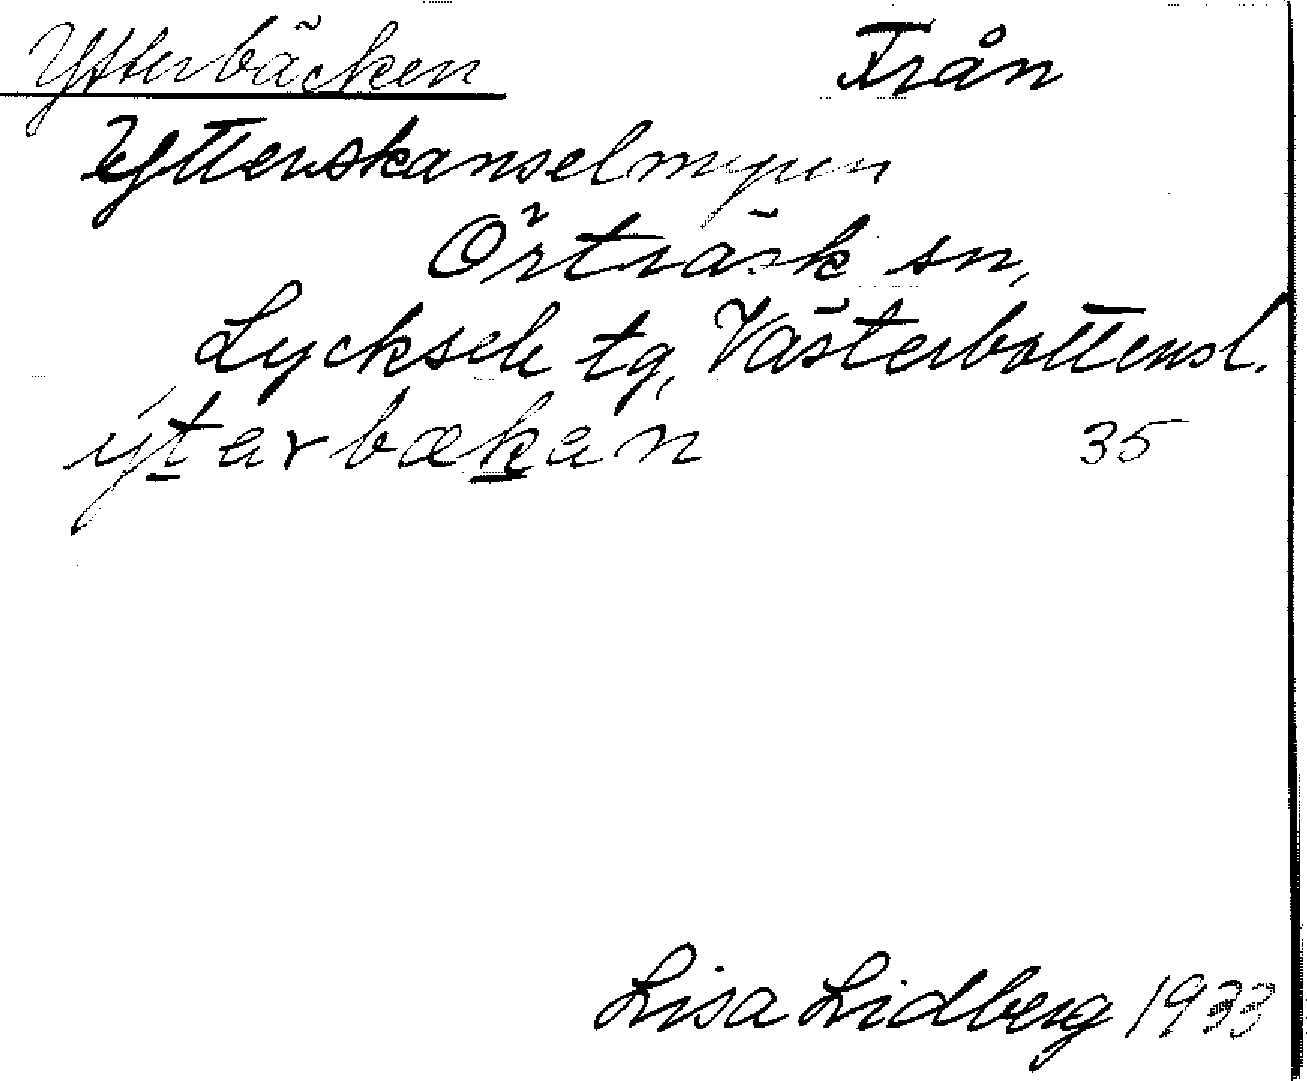 Ytterbäcken Från
Ytterskanselmyren
Örträsk sn,
Lycksele tg, Västerbottensl.
ýt̲ərbæk̲ən 35
Lisa Lidberg 1933